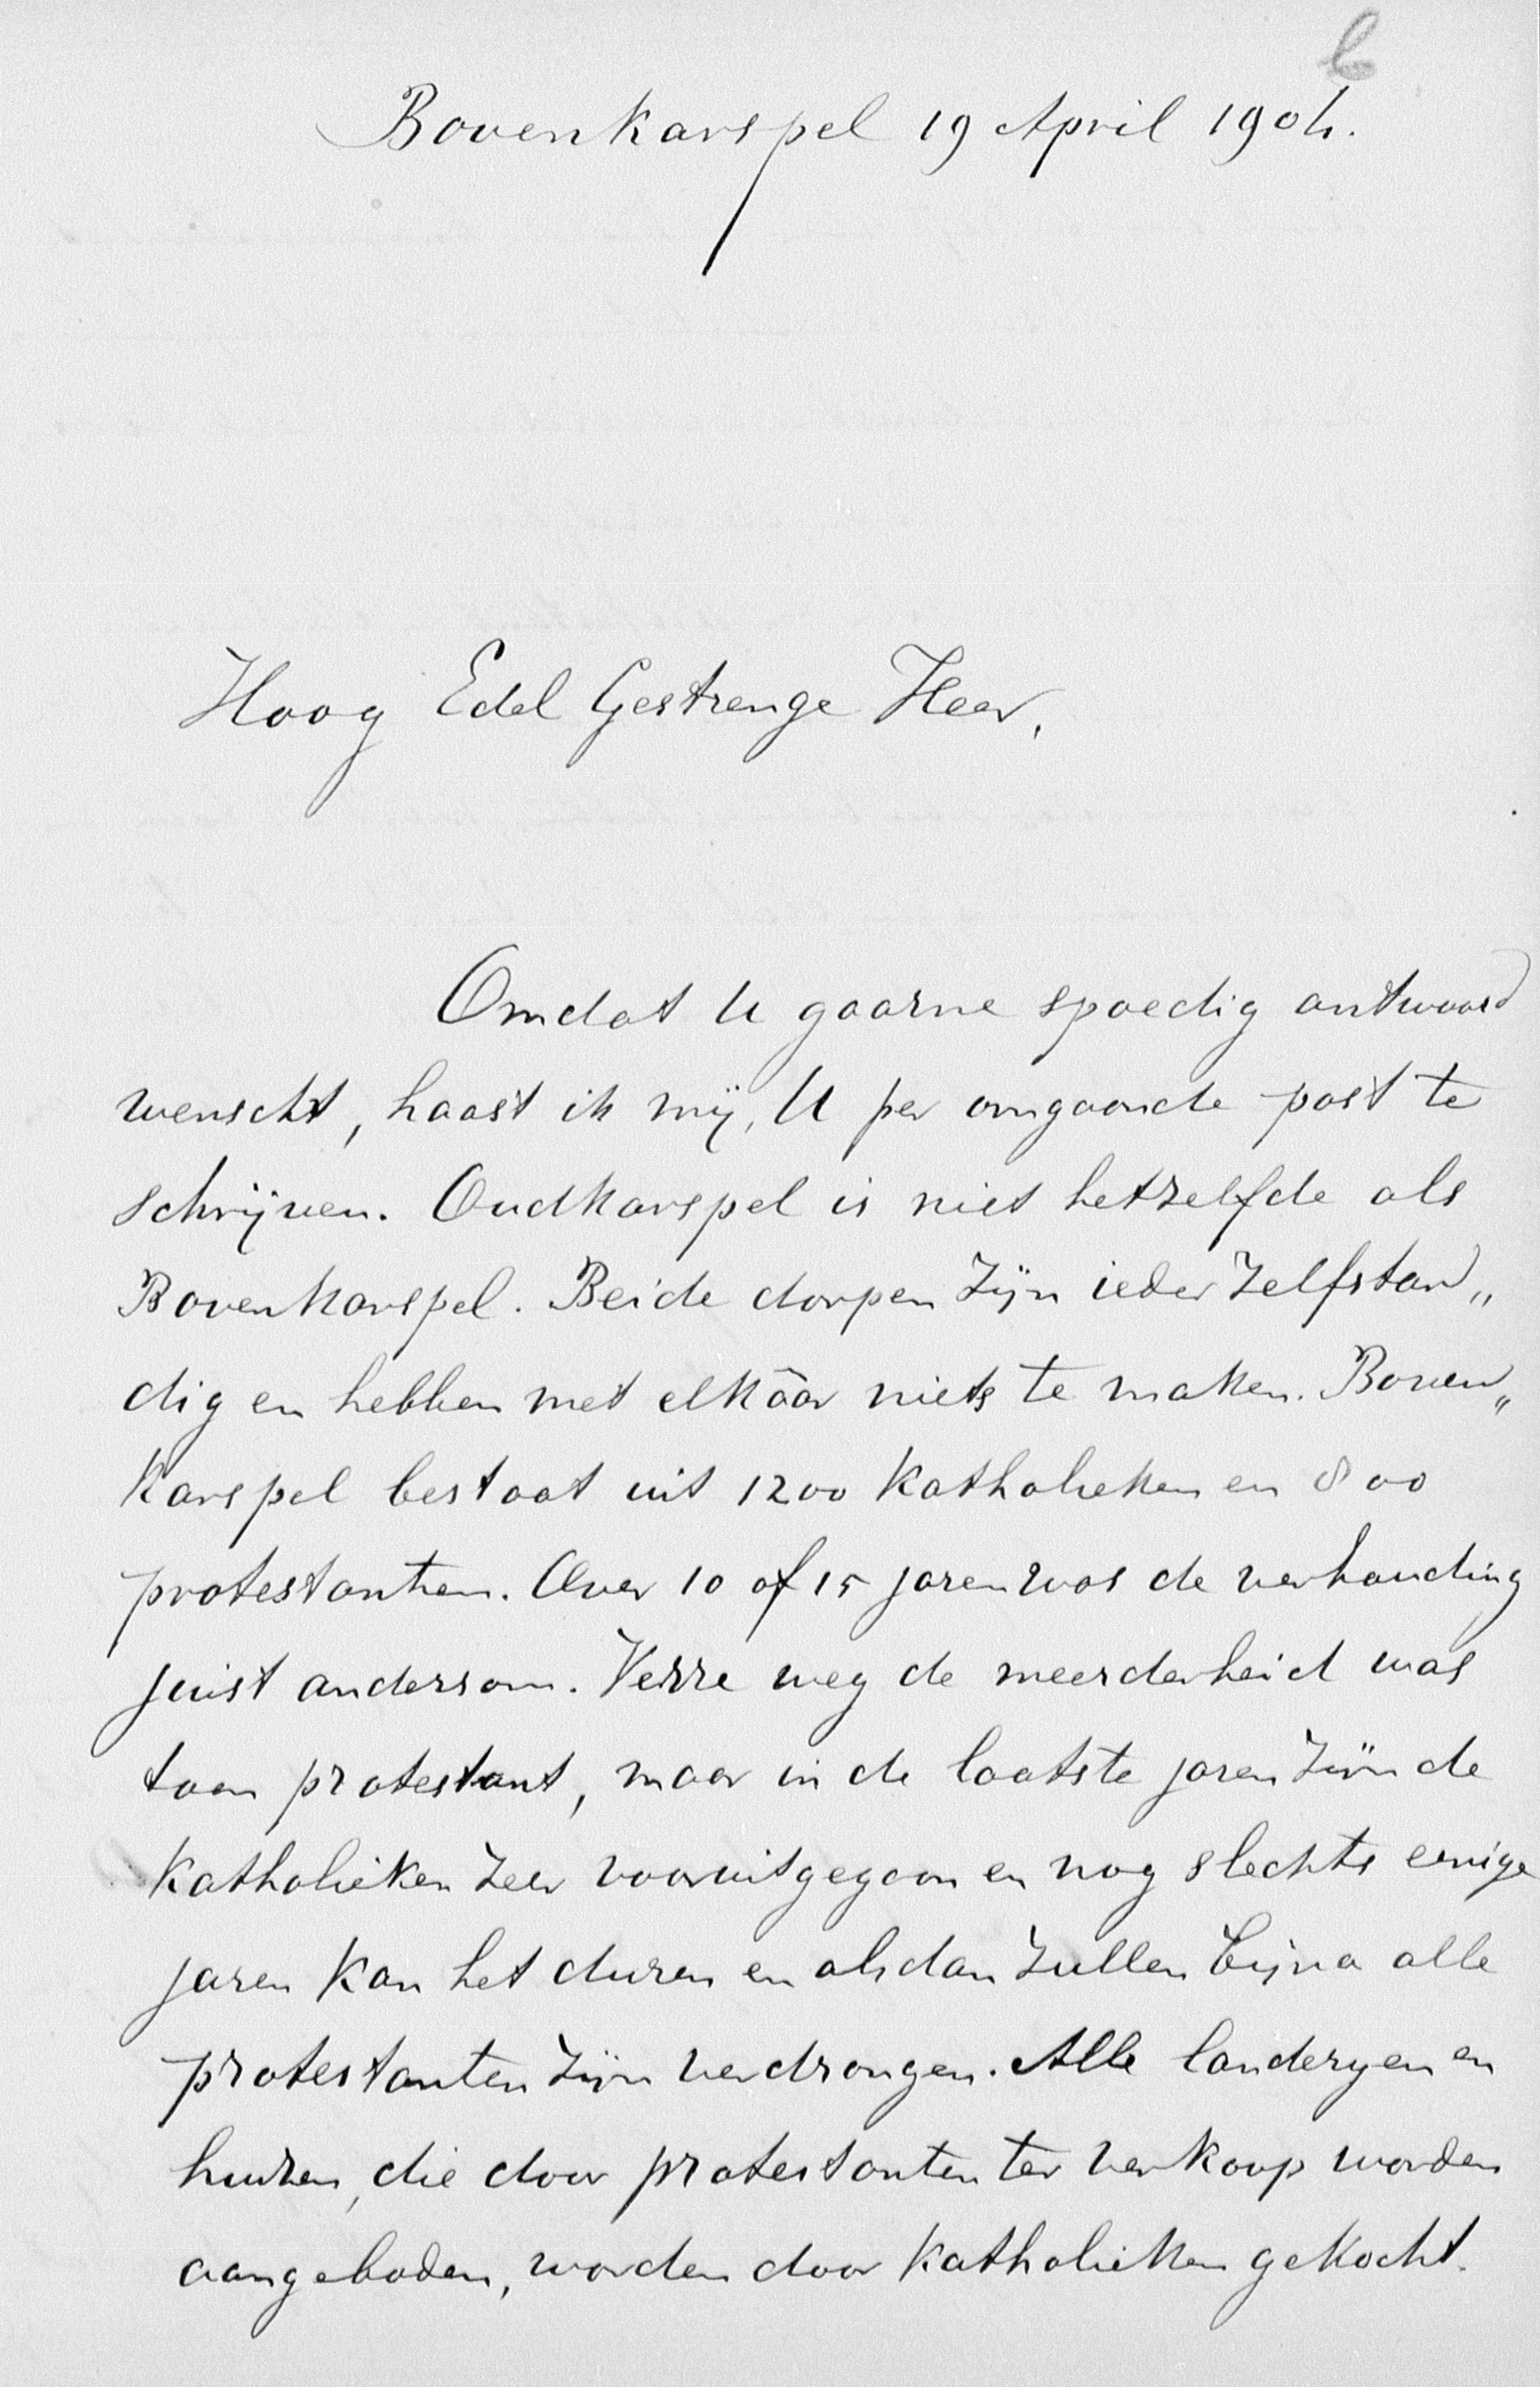 b
Bovenkarspel 19 April 1904.
Hoog Edel Gestrenge Heer,
Omdat U gaarne spoedig antwoord
wenscht, haast ik mij, U per omgaande post te
schrijven. Oudkarspel is niet hetzelfde als
Bovenkarspel. Beide dorpen zijn ieder zelfstan„
dig en hebben met elkâar niets te maken. Boven„
karspel bestaat uit 1200 Katholieken en 800
protestanten. Over 10 of 15 jaren was de verhouding
juist andersom. Verre weg de meerderheid was
toen protestant, maar in de laatste jaren zijn de
Katholieken zeer vooruitgegaan en nog slechts eenige
jaren kan het duren en alsdan zullen bijna alle
protestanten zijn verdrongen. Alle landeryen en
huizen, die door protestanten ter verkoop worden
aangeboden, worden door Katholieken gekocht.